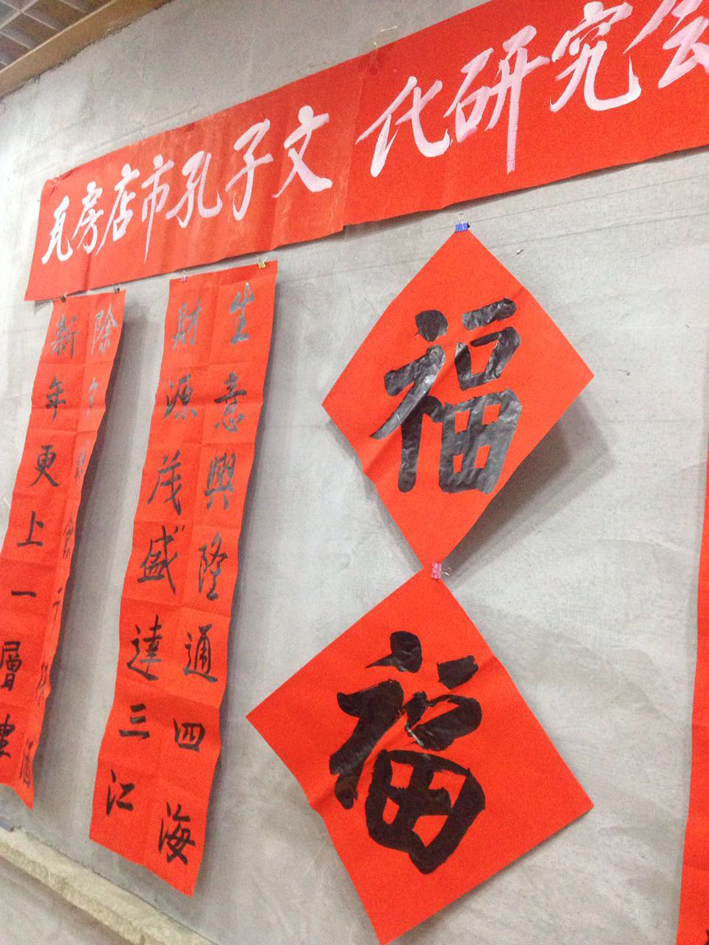 瓦房店市孔子文化研究会
福
福
生意興隆通四海
財源茂盛達三江
除夕 千 酒
新年更上一層樓